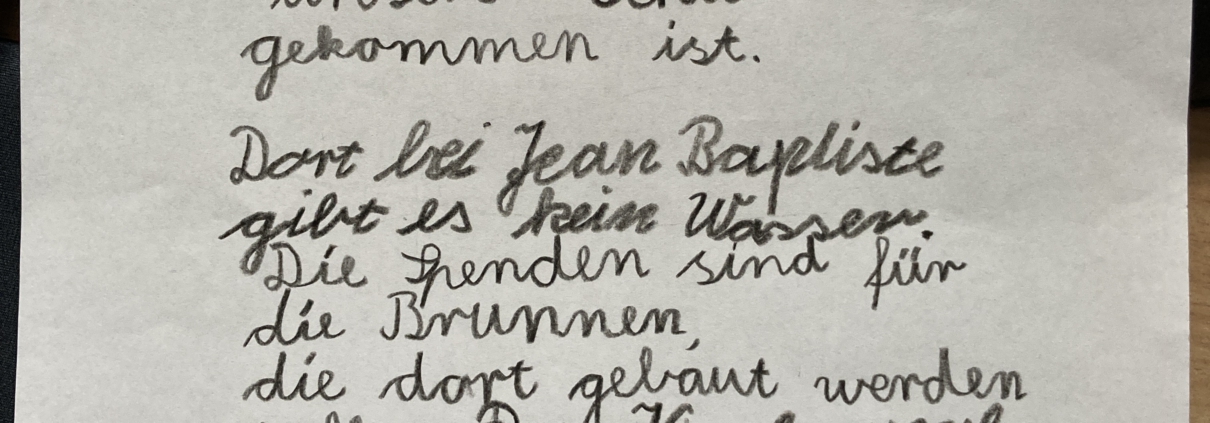 gekommen ist.
Dort bei Jean Baptiste
gibt es kein Wasser.
Die Spenden sind für
die Brunnen,
die dort gebaut werden